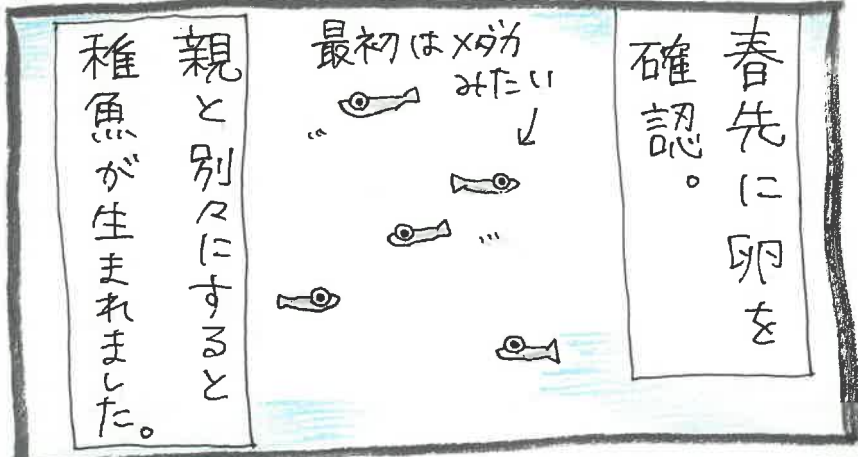 春先に卵を
確認。
最初はメダカ
みたい
親と別々にすると
稚魚が生まれました。